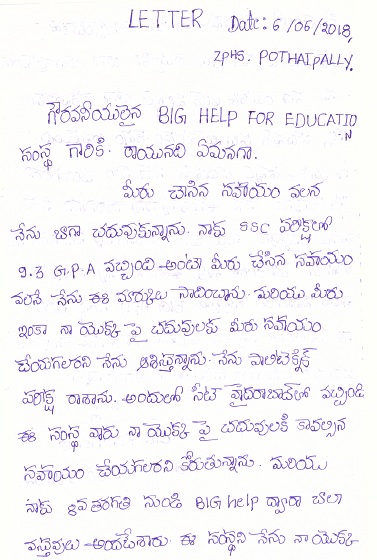 LETTER Date: 6/06/2018,
ZPHS. POTHAIPALLY.
గౌరవనీయులైన BIG HELP FOR EDUCATION
సంస్థ గారికి. రాయునది ఏమనగా.
మీరు చేసిన సహాయం వలన
నేను బాగా చదువుకున్నాను. నాకు SSC పరీక్షలో
9.3 G.P.A వచ్చింది అంటే మీరు చేసిన సహాయం
వలనే నేను ఈ మార్కులు సాదించాను. మరియు మీరు
ఇంకా నా యొక్క పై చదువులకు మీరు సహాయం
చేయగలరని నేను ఆశిస్తున్నాను. నేను పాలిటెక్నిక్
పరీక్ష రాశాను. అందులో సీట్ హైదరాబాద్‌లో వచ్చింది
ఈ సంస్థ వారు నా యొక్క పై చదువులకి కావల్సిన
సహాయం చేయగలరని కోరుతున్నాను. మరియు
నాకు 8వ తరగతి నుండి BIG help ద్వారా చాలా
వస్తువులు అందజేశారు. ఈ సంస్థని నేను నా యొక్క